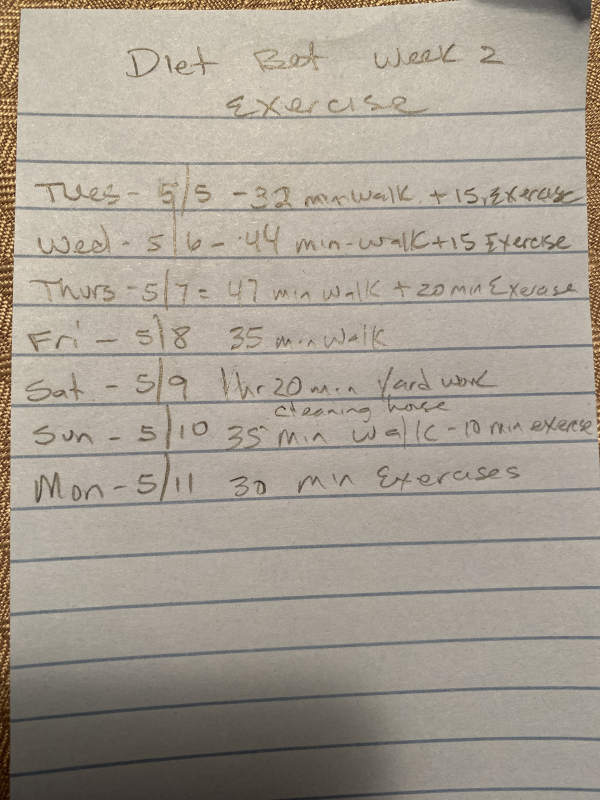 Diet Bet Week 2
Exercise
Tues - 5/5 - 32 min walk + 15, Exercise
Wed - 5/6 - 44 min - walk + 15 Exercise
Thurs - 5/7 = 47 min walk + 20 min Exercise
Fri - 5/8 35 min walk
Sat - 5/9 1 hr 20 min Yard work
cleaning house
Sun - 5/10 35 min walk - 10 min exercise
Mon - 5/11 30 min Exercises